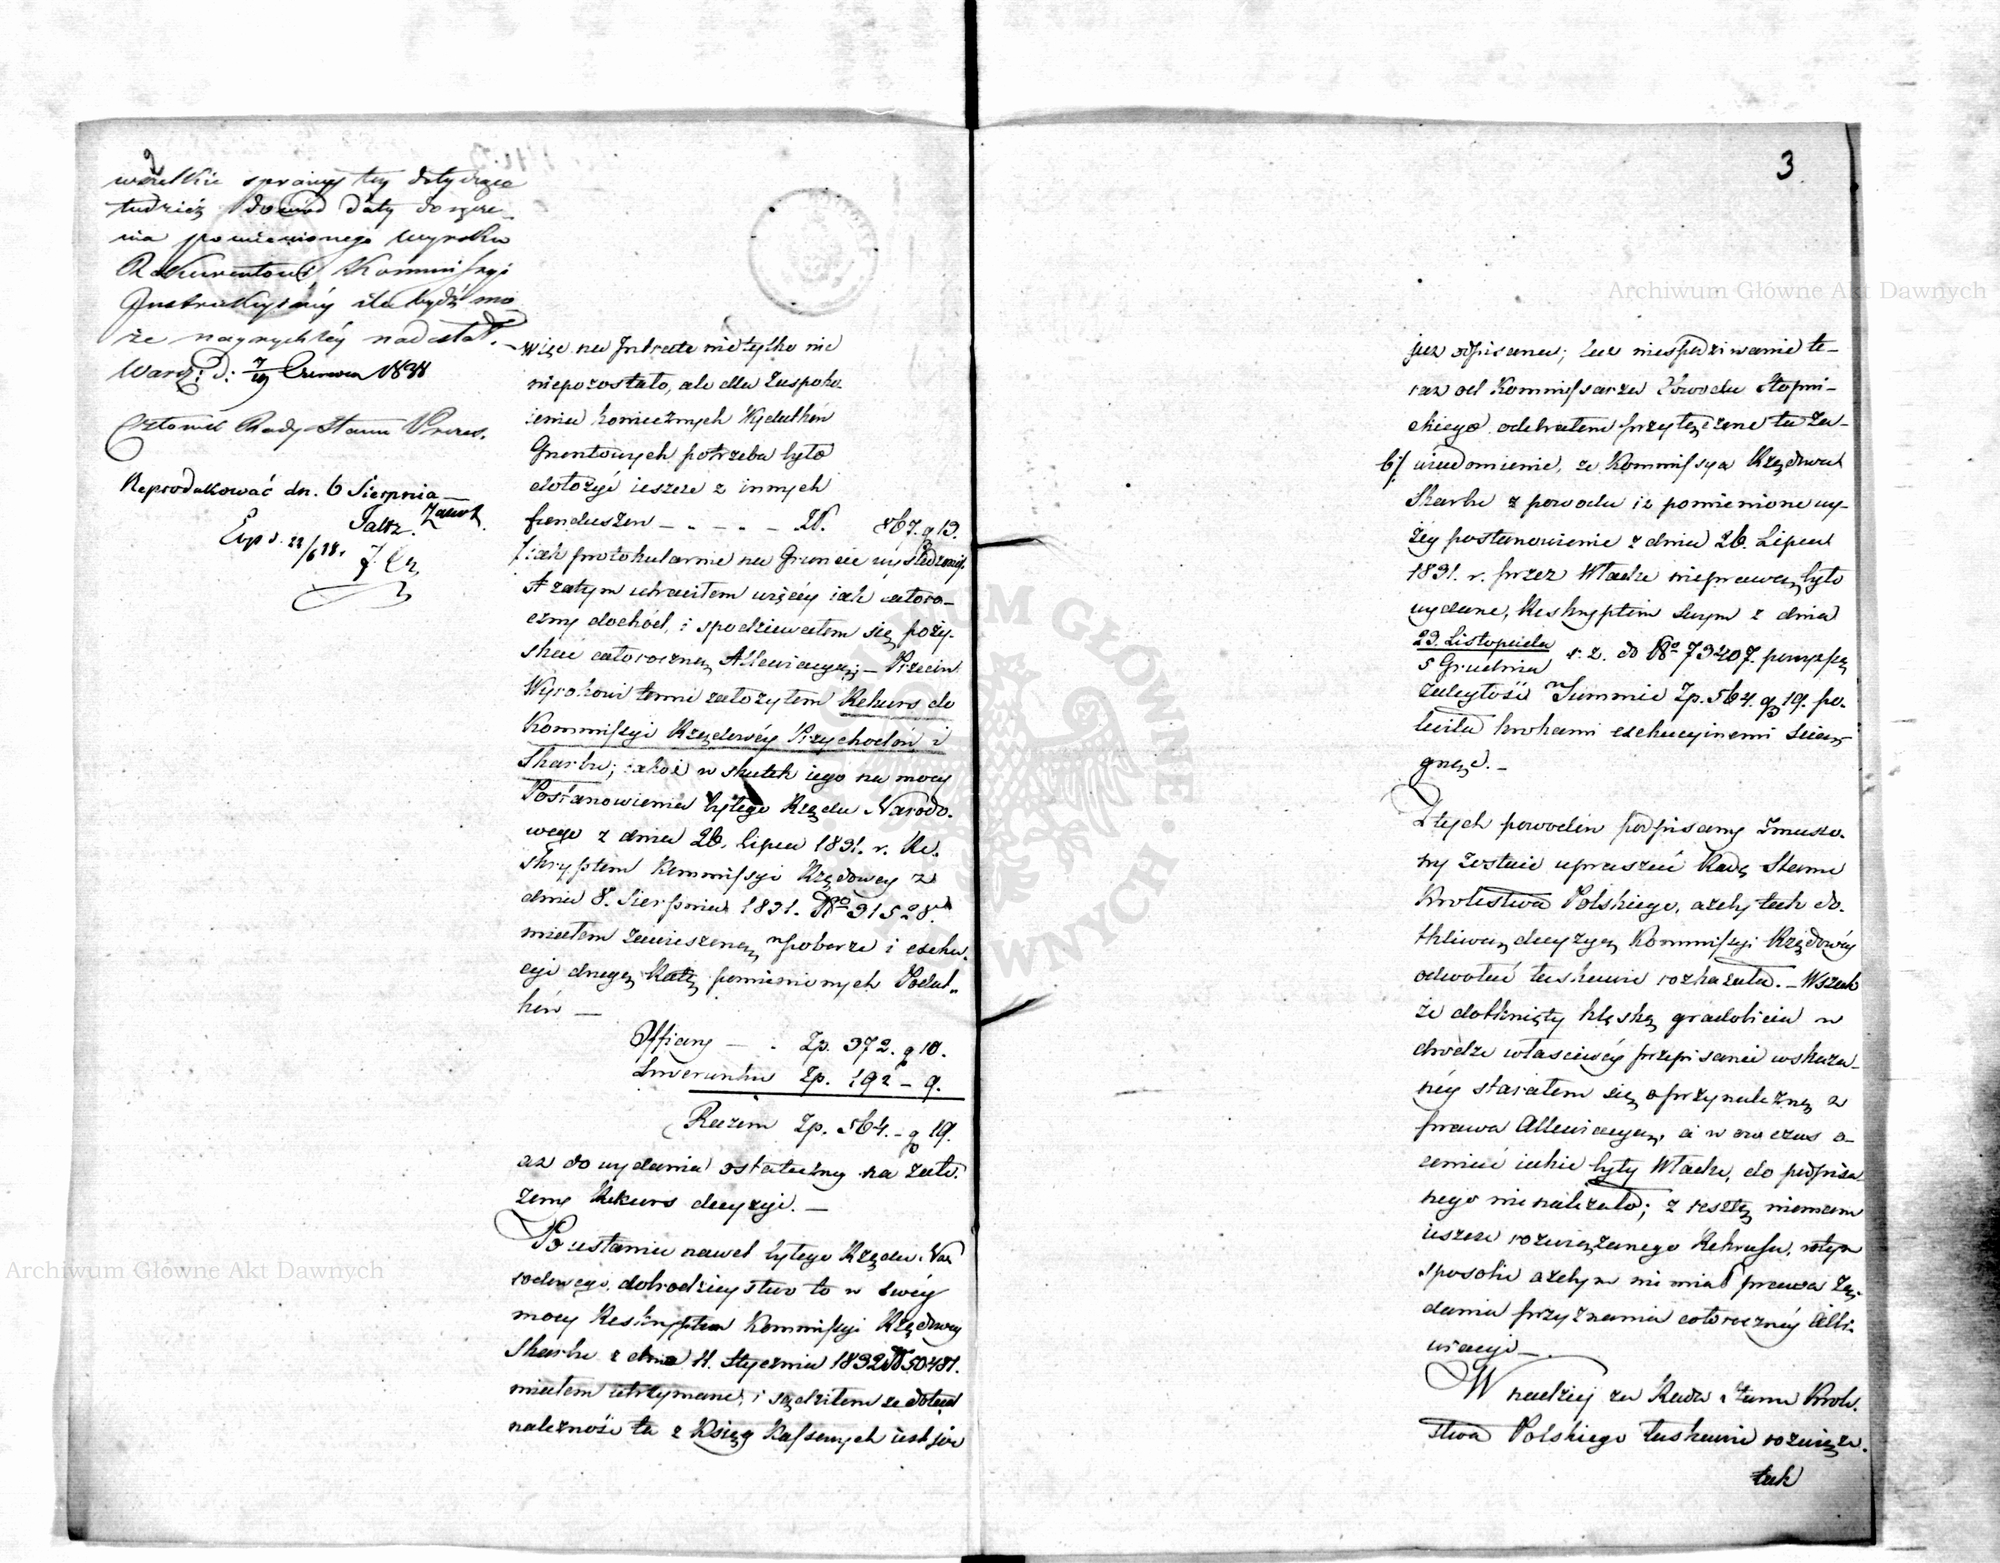 wszelkie sprawy tey dotyczące
tudzież dowód daty doręcze-
nia pomienionego Wyroku
Rekurentowi Kommissyi
Instrukcyiney ile bydź mo
że nayrychley nadesłał.
Warsz: d: 7/19 Czerwca 1838
Członek Rady Stanu Prezes.
Reprodukować dn. 6 Sierpnia
Exp d. 22/6 38.
więc na Intrate nietylko nic
niepozostało, ale dla zaspoko-
ienia koniecznych Wydatków
Gruntowych potrzeba było
dołożyć ieszcze z innych
funduszów — - - - - Zł. 867. g 13.
iak protokularnie na Gruncie wyśledzono.
A zatym utraciłem więcéy iak całoro-
czny dochód, i spodziewałem się pozy-
skać całoroczną Allewiacyą; — Przeciw
Wyrokowi temu założyłem Rekurs do
Kommissyi Rządowéy Przychodów i
Skarbu; iakoż w skutek iego na mocy
Postanowienia byłego Rządu Narodo-
wego z dnia 26. Lipca 1831. r. Re-
skryptem Kommissyi Rządowey z
dnia 8. Sierpnia 1831. No 31528.
miałem zawieszenie w poborze i exeku-
cyi drugą Ratę pomienionych Podat-
ków —
Offiary — - Zp. 372. g 10.
Liwerunku Zp. 192 - 9.
Razem Zp. 564. - g 19.
aż do wydania ostateczny na zało-
żony Rekurs decyzyi. —
Po ustaniu nawet byłego Rządu Na-
rodowego, dobrodzieystwo to w swéy
mocy Reskryptem Kommissyi Rządowey
Skarbu z dnia 11. Stycznia 1832 No 50481.
miałem utrzymane, i sądziłem że dotąd
należność ta z Ksiąg Kassowych iest iuż
3
iuż odpisana; lecz niespodziwanie te-
raz od Kommissarza Obwodu Stopni-
ckiego odebrałem przyłączone tu za-
b/. wiadomienie, że Kommissya Rządowa
Skarbu z powodu iż pomienione wy-
żéy postanowienie z dnia 26. Lipca
1831. r. przez Władze nieprawą było
wydane, Reskryptem swym z dnia
23. Listopada / 5 Grudnia r. z. do No 73407. powyższą
zaległość w Summie Zp. 564. g 19. po-
leciła krokami exekucyinemi ściąg-
gnąć. —
Z tych powodów podpisany zmuszo-
ny zostaie upraszać Radę Stanu
Królestwa Polskiego, ażeby tak do-
tkliwą decyzyą Kommissyi Rządowéy
odwołać łaskawie rozkazała. — Wszak
że dotknięty klęską gradobicia w
drodze właściwéy przepisami wskaza-
néy starałem się o przynależną z
prawa Allewiacyą, a w ow czas o-
ceniać iakie były Władze, do podpisa-
nego nie należało; z resztą niemam
ieszcze rozwiązanego Rekursu,
sposobie ażebym nie miał prawa żą-
dania przyznania całoroczney Alle-
wiacyi —.
W nadziei że Rada Stanu Króle-
stwa Polskiego łaskawie rozwiąże.
tak
Archiwum Główne Akt Dawnych
Archiwum Główne Akt Dawnych